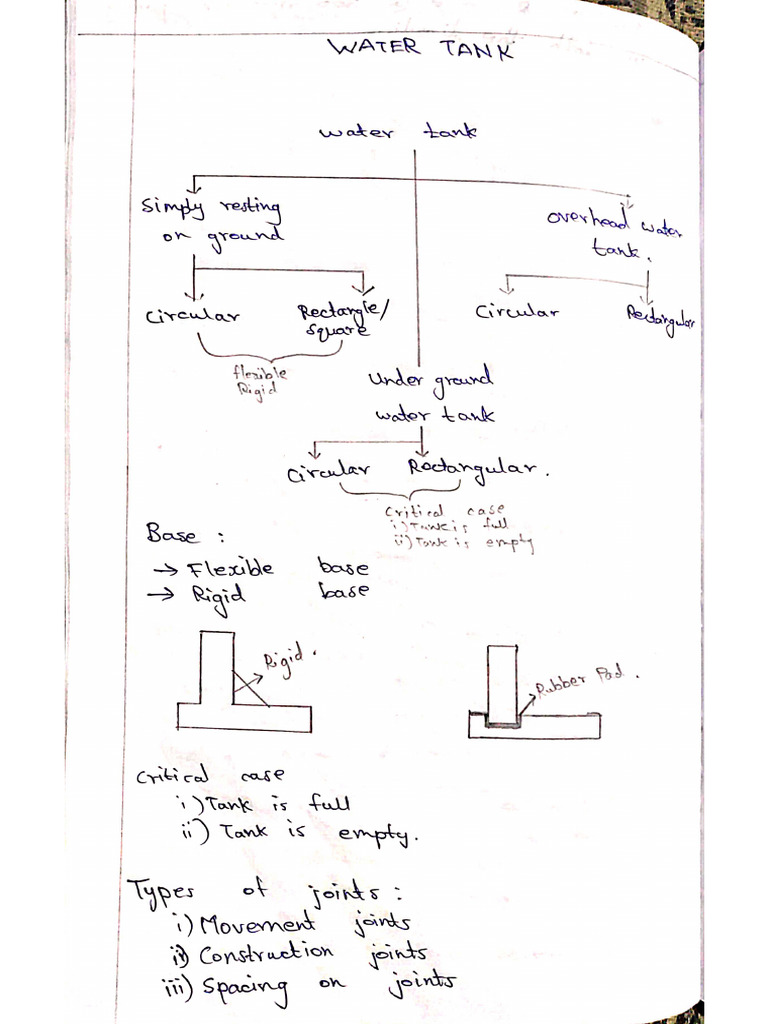 WATER TANK
water tank
Simply resting
on ground
overhead water
tank.
Circular
Rectangle/
square
Circular
Rectangular
flexible
Rigid
Under ground
water tank
Circular
Rectangular.
Critical case
i) Tank is full
ii) Tank is empty
Base :
→ Flexible base
→ Rigid base
Rigid.
Rubber Pad.
Critical case
i) Tank is full
ii) Tank is empty.
Types of joints :
i) Movement joints
ii) Construction joints
iii) Spacing on joints